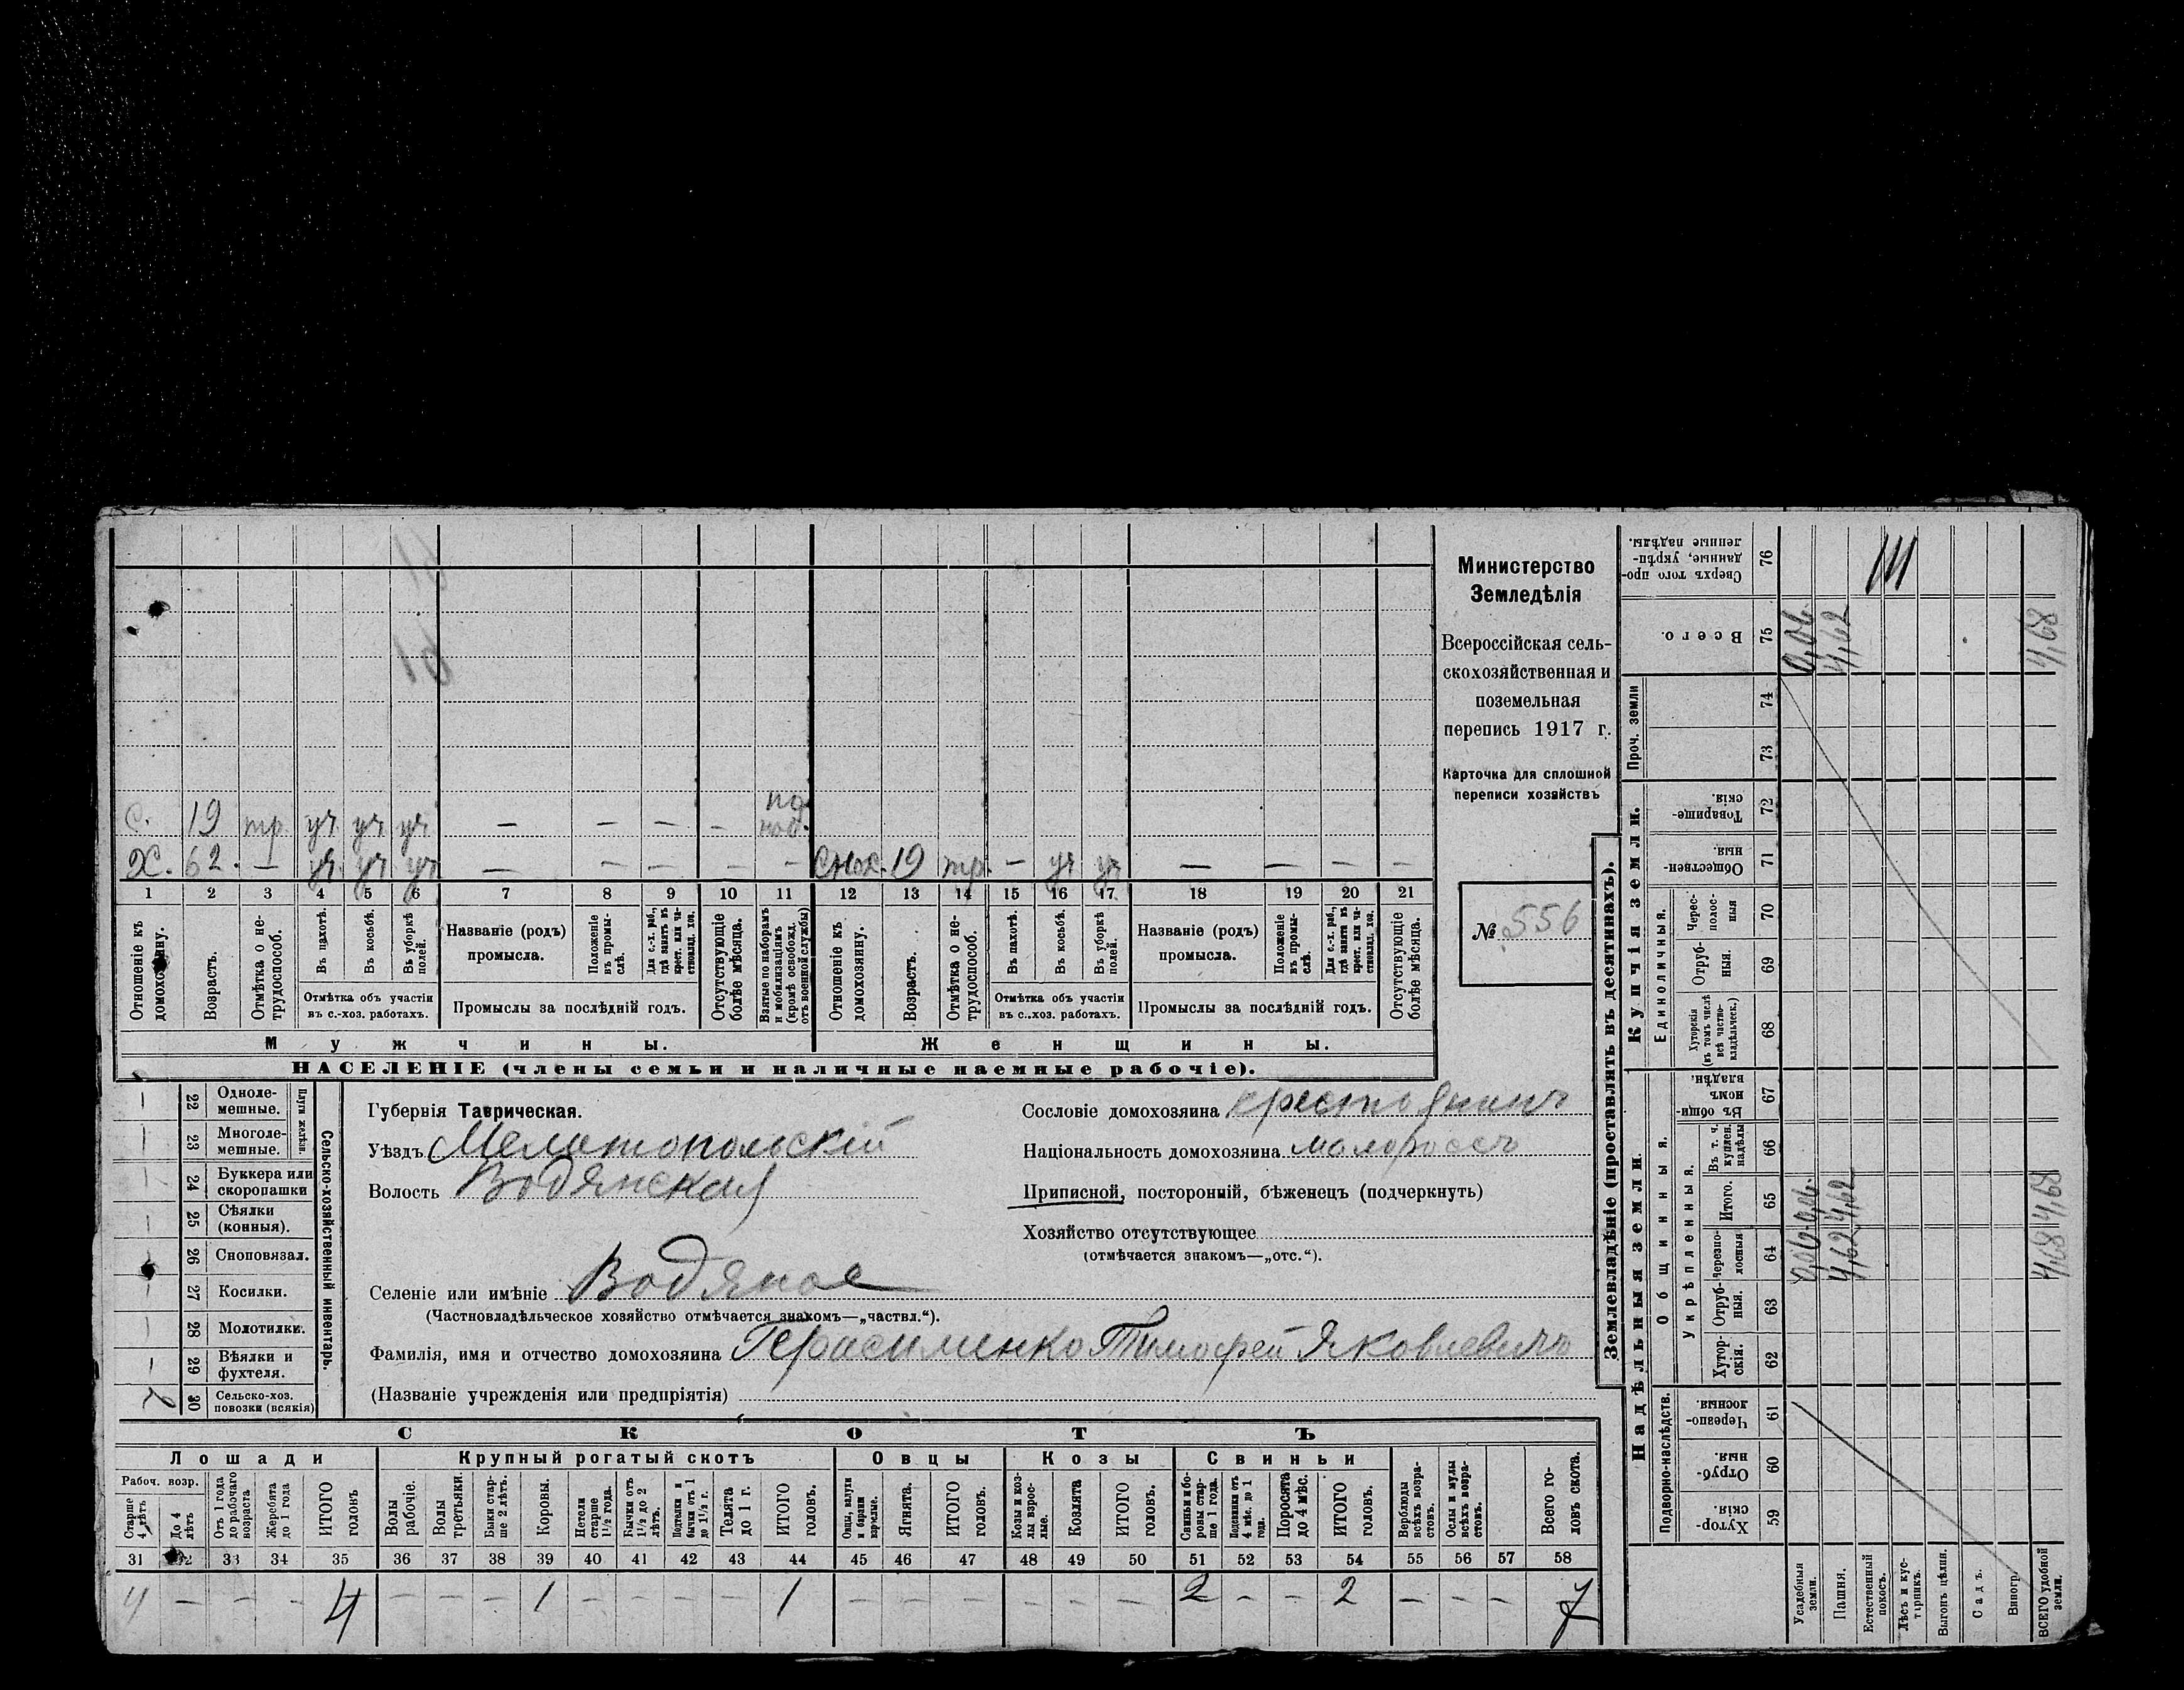 Министерство
Земледѣлія
Всероссійская сель-
скохозяйственная и
поземельная
перепись 1917 г.
Карточка для сплошной
переписи хозяйствъ
№ 556
С. 19 тр. уч. уч. уч. — — — —
Х. 62. — уч. уч. уч — — — — — снох. 19 тр. — уч уч — — — —
1 2 3 4 5 6 7 8 9 10 11 12 13 14 15 16 17 18 19 20 21
Отношеніе къ домохозяину.
Возрастъ.
Отмѣтка о не-трудоспособ.
Въ пахотѣ.
Въ косьбѣ.
Въ уборкѣ полей.
Отмѣтка объ участіи
въ с.-хоз. работахъ.
Названіе (родъ)
промысла.
Положеніе въ промы-слѣ.
Для с.-х. раб., гдѣ занятъ въ крест. или ча-стновлад. хоз.
Промыслы за послѣдній годъ.
Отсутствующіе болѣе мѣсяца.
Взятые по наборамъ и мобилизаціямъ (кромѣ освобожд. отъ военной службы)
Отношеніе къ домохозяину.
Возрастъ.
Отмѣтка о не-трудоспособ.
Въ пахотѣ.
Въ косьбѣ.
Въ уборкѣ полей.
Отмѣтка объ участіи
въ с.-хоз. работахъ.
Названіе (родъ)
промысла.
Положеніе въ промы-слѣ.
Для с.-х. раб., гдѣ занята въ крест. или ча-стновлад. хоз.
Промыслы за послѣдній годъ.
Отсутствующіе болѣе мѣсяца.
Мужчины. Женщины.
НАСЕЛЕНІЕ (члены семьи и наличные наемные рабочіе).
Сельско-хозяйственный инвентарь.
Плуги желѣзн.
— 22 Одноле-мешные.
— 23 Многоле-мешные.
— 24 Буккера или скоропашки
— 25 Сѣялки (конныя).
26 Сноповязал.
— 27 Косилки.
— 28 Молотилки.
— 29 Вѣялки и фухтеля.
2 30 Сельско-хоз. повозки (всякія)
Губернія Таврическая.
Уѣздъ Мелитопольскій
Волость Водянская
Селеніе или имѣніе Водяное
(Частновладѣльческое хозяйство отмѣчается знакомъ—„частвл.“).
Фамилія, имя и отчество домохозяина Герасименко Тимофей Яковлевичъ
(Названіе учрежденія или предпріятія)
Сословіе домохозяина крестьянинъ
Національность домохозяина малороссъ
Приписной, посторонній, бѣженецъ (подчеркнуть)
Хозяйство отсутствующее
(отмѣчается знакомъ—„отс.“).
СКОТЪ
Лошади Крупный рогатый скотъ Овцы Козы Свиньи
Рабоч. возр.
Старше 4 лѣтъ
До 4 лѣтъ
Отъ 1 года до рабочаго возраста
Жеребята до 1 года
ИТОГО головъ
Волы рабочіе.
Волы третьяки.
Быки стар-ше 2 лѣтъ.
Коровы.
Нетели старше 1½ года.
Бычки отъ 1½ до 2 лѣтъ.
Подтелки и бычки отъ 1 до 1½ г.
Телята до 1 г.
ИТОГО головъ.
Овцы, валухи и бараны взрослые.
Ягнята.
ИТОГО головъ.
Козы и коз-лы взрос-лые.
Козлята
ИТОГО головъ.
Свиньи и бо-ровы стар-ше 1 года.
Подсвинки отъ 4 мѣс. до 1 года.
Поросята до 4 мѣс.
ИТОГО головъ.
Верблюды всѣхъ возра-стовъ.
Ослы и мулы всѣхъ возра-стовъ.
Всего го-ловъ скота.
31 32 33 34 35 36 37 38 39 40 41 42 43 44 45 46 47 48 49 50 51 52 53 54 55 56 57 58
4 — — — 4 — — — 1 — — — — 1 — — — — — — 2 — — 2 — — — 7
Землевладѣніе (проставлять въ десятинахъ).
Надѣльныя земли. Купчія земли. Проч. земли
Подворно-наслѣдств.
Общинныя.
Укрѣпленныя.
Единоличныя.
Хутор-скія. 59
Отруб-ныя. 60
Черезпо-лосныя. 61
Хутор-скія. 62
Отруб-ныя. 63
Черезпо-лосныя 64
Итого. 65
Въ т. ч. куплен. надѣлы 66
Въ общи-номъ владѣн. 67
Хуторскія (въ томъ числѣ всѣ частно-владѣльческ.) 68
Отруб-ныя. 69
Черес-полос-ныя 70
Обществен-ныя. 71
Товарище-скія. 72
73
74
Всего. 75
Сверхъ того про-данные, укрѣп-ленные надѣлы. 76
Усадебныя земли. 0,06 0,06 0,06
Пашня. 4,62 4,62 4,62
Естественный покосъ.
Лѣсъ и кус-тарникъ.
Выгонъ цѣлин.
Садъ.
Виногр.
ВСЕГО удобной земли. 4,68 4,68 4,68